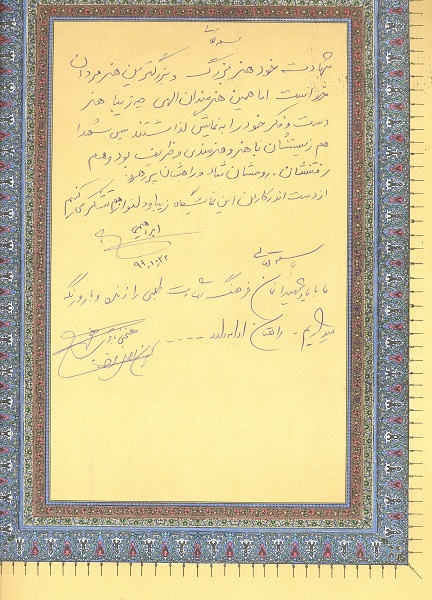 بسمه تعالی
شهادت خود هنر بزرگ و بزرگترین هنر مردان
خداست اما همین هنرمندان الهی چه زیبا هنر
دست و فکر خود را به نمایش گذاشتند پس شهدا
هم زیستنشان با هنر و هنرمندی و ظریف بود و هم
رفتنشان. روحشان شاد و راهشان پر رهرو.
از دست اندرکاران این نمایشگاه زیبا و دلنواز هم تشکر می کنیم
ابراهیمی
۹۹،۱۰،۲۲
بسمه تعالی
ما با یاد شهیدانمان فرهنگ شهادت طلبی را زنده و باروز نگه
میداریم - راهتان ادامه دارد - - - - -